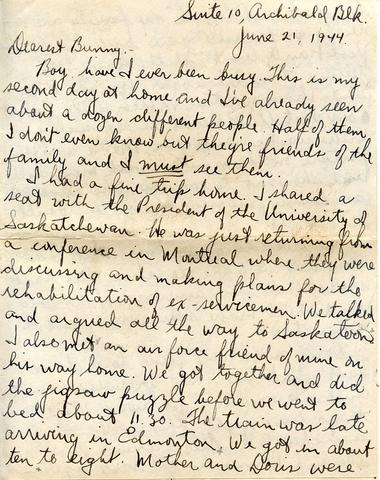 Suite 10, Archibald Blk.
June 21, 1944.
Dearest Bunny,-
Boy, have I ever been busy. This is my
second day at home and I've already seen
about a dozen different people. Half of them
I don't even know but they're friends of the
family and I must see them.
I had a fine trip home. I shared a
seat with the President of the University of
Saskatchewan. He was just returning from
a conference in Montreal where they were
discussing and making plans for the
rehabilitation of ex-servicemen. We talked
and argued all the way to Saskatoon.
I also met an air force friend of mine on
his way home. We got together and did
the jigsaw puzzle before we went to
bed about 11.30. The train was late
arriving in Edmonton. We got in about
ten to eight. Mother and Doris were